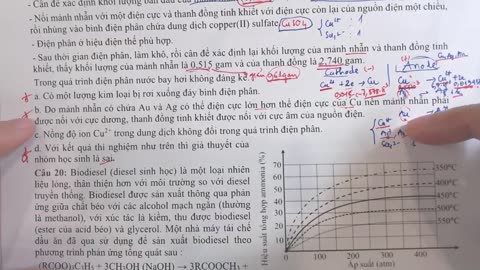 - Cân để xác định khối lượng ban đầu của
- Nối mảnh nhẫn với một điện cực và thanh đồng tinh khiết với điện cực còn lại của nguồn điện một chiều,
rồi nhúng vào bình điện phân chứa dung dịch copper(II) sulfate.
- Điện phân ở hiệu điện thế phù hợp.
- Sau thời gian điện phân, làm khô, rồi cân để xác định lại khối lượng của mảnh nhẫn và thanh đồng tinh
khiết, thấy khối lượng của mảnh nhẫn là 0,515 gam và của thanh đồng là 2,740 gam.
Trong quá trình điện phân nước bay hơi không đáng kể.
a. Có một lượng kim loại bị rơi xuống đáy bình điện phân.
b. Do mảnh nhẫn có chứa Au và Ag có thế điện cực lớn hơn thế điện cực của Cu nên mảnh nhẫn phải
được nối với cực dương, thanh đồng tinh khiết được nối với cực âm của nguồn điện.
c. Nồng độ ion Cu²⁺ trong dung dịch không đổi trong quá trình điện phân.
d. Với kết quả thí nghiệm như trên thì giả thuyết của
nhóm học sinh là sai.
Câu 20: Biodiesel (diesel sinh học) là một loại nhiên
liệu lỏng, thân thiện hơn với môi trường so với diesel
truyền thống. Biodiesel được sản xuất thông qua phản
ứng giữa chất béo với các alcohol mạch ngắn (thường
là methanol), với xúc tác là kiềm, thu được biodiesel
(ester của acid béo) và glycerol. Một nhà máy tái chế
dầu ăn đã qua sử dụng để sản xuất biodiesel theo
phương trình phản ứng tổng quát sau :
(RCOO)₃C₃H₅ + 3CH₃OH (NaOH) → 3RCOOCH₃ +
CuSO4
Cathode (-)
Anode
Cu²⁺ + 2e → Cu
Hiệu suất tổng hợp ammonia (%)
70
60
50
40
30
20
10
0
100
200
300
400
Áp suất (atm)
350°C
400°C
450°C
500°C
550°C